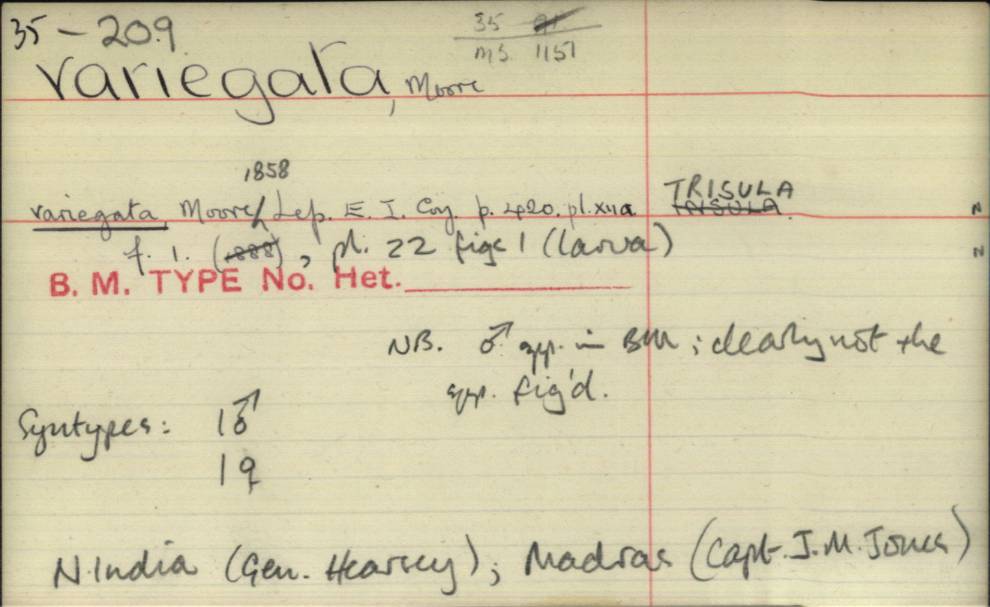 35 - 209
35 91
MS 1151
variegata, Moore
1858
variegata, Moore, Lep. E. I. Coy. p. 420. pl. xiia
TRISULA
INSULA
f. 1. (1888), pl. 22 figs 1 (larva)
N
N
B. M. TYPE No. Het.
NB. ♂ spp. in BM; clearly not the
spp. fig'd.
Syntypes: 1♂
1♀
N. India (Gen. Hearsey); Madras (Capt. J. M. Jones)